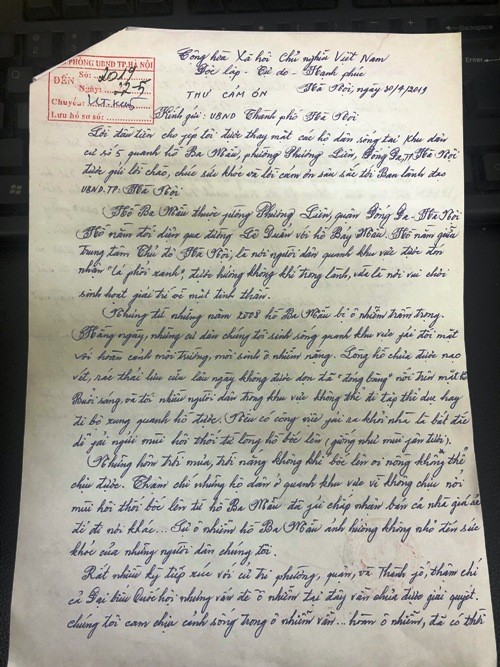 PHÒNG UBND TP.HÀ NỘI
ĐẾN Số: 2019
Ngày: 22-5
Chuyển:
Lưu hồ sơ số:
Cộng hòa Xã hội Chủ nghĩa Việt Nam
Độc lập - Tự do - Hạnh phúc
Hà Nội, ngày 30/4/2019
THƯ CẢM ƠN
Kính gửi: UBND Thành phố Hà Nội
Lời đầu tiên cho phép tôi được thay mặt các hộ dân sống tại khu dân
cư số 5 quanh hồ Ba Mẫu, phường Phương Liên, Đống Đa, TP. Hà Nội
được gửi lời chào, chúc sức khỏe và lời cảm ơn sâu sắc tới Ban lãnh đạo
UBND.TP. Hà Nội.
Hồ Ba Mẫu thuộc phường Phương Liên, quận Đống Đa - Hà Nội
Hồ nằm đối diện qua đường Lê Duẩn với hồ Bảy Mẫu. Hồ nằm giữa
trung tâm Thủ đô Hà Nội, là nơi người dân quanh khu vực được đón
nhận "lá phổi xanh", được hưởng không khí trong lành, vừa là nơi vui chơi
sinh hoạt giải trí về mặt tinh thần.
Nhưng từ những năm 2008 hồ Ba Mẫu bị ô nhiễm trầm trọng.
Hàng ngày, những cư dân chúng tôi sinh sống quanh khu vực phải đối mặt
với hoàn cảnh môi trường, môi sinh ô nhiễm nặng. Lòng hồ chưa được nạo
vét, rác thải lưu cữu lâu ngày không được dọn đã "đóng băng" nổi trên mặt hồ
Buổi sáng và tối nhiều người dân trong khu vực không thể đi tập thể dục hay
đi bộ xung quanh hồ được. Nếu có công việc phải ra khỏi nhà là bất đắc
dĩ phải ngửi mùi hôi thối từ lòng hồ bốc lên (giống như mùi rắm tươi).
Những hôm trời mưa, trời nắng không khí bốc lên oi nồng không thể
chịu được. Thậm chí những hộ dân ở quanh khu vực vì không chịu nổi
mùi hôi thối bốc lên từ hồ Ba Mẫu đã phải chấp nhận bán cả nhà giá rẻ
để đi nơi khác... Sự ô nhiễm hồ Ba Mẫu ảnh hưởng không nhỏ đến sức
khỏe của những người dân chúng tôi.
Rất nhiều kỳ tiếp xúc với cử tri phường, quận, và Thành phố, thậm chí
cả Đại biểu Quốc hội nhưng vấn đề ô nhiễm tại đây vẫn chưa được giải quyết.
chúng tôi cam chịu cảnh sống trong ô nhiễm vẫn... hoàn ô nhiễm, đã có thời